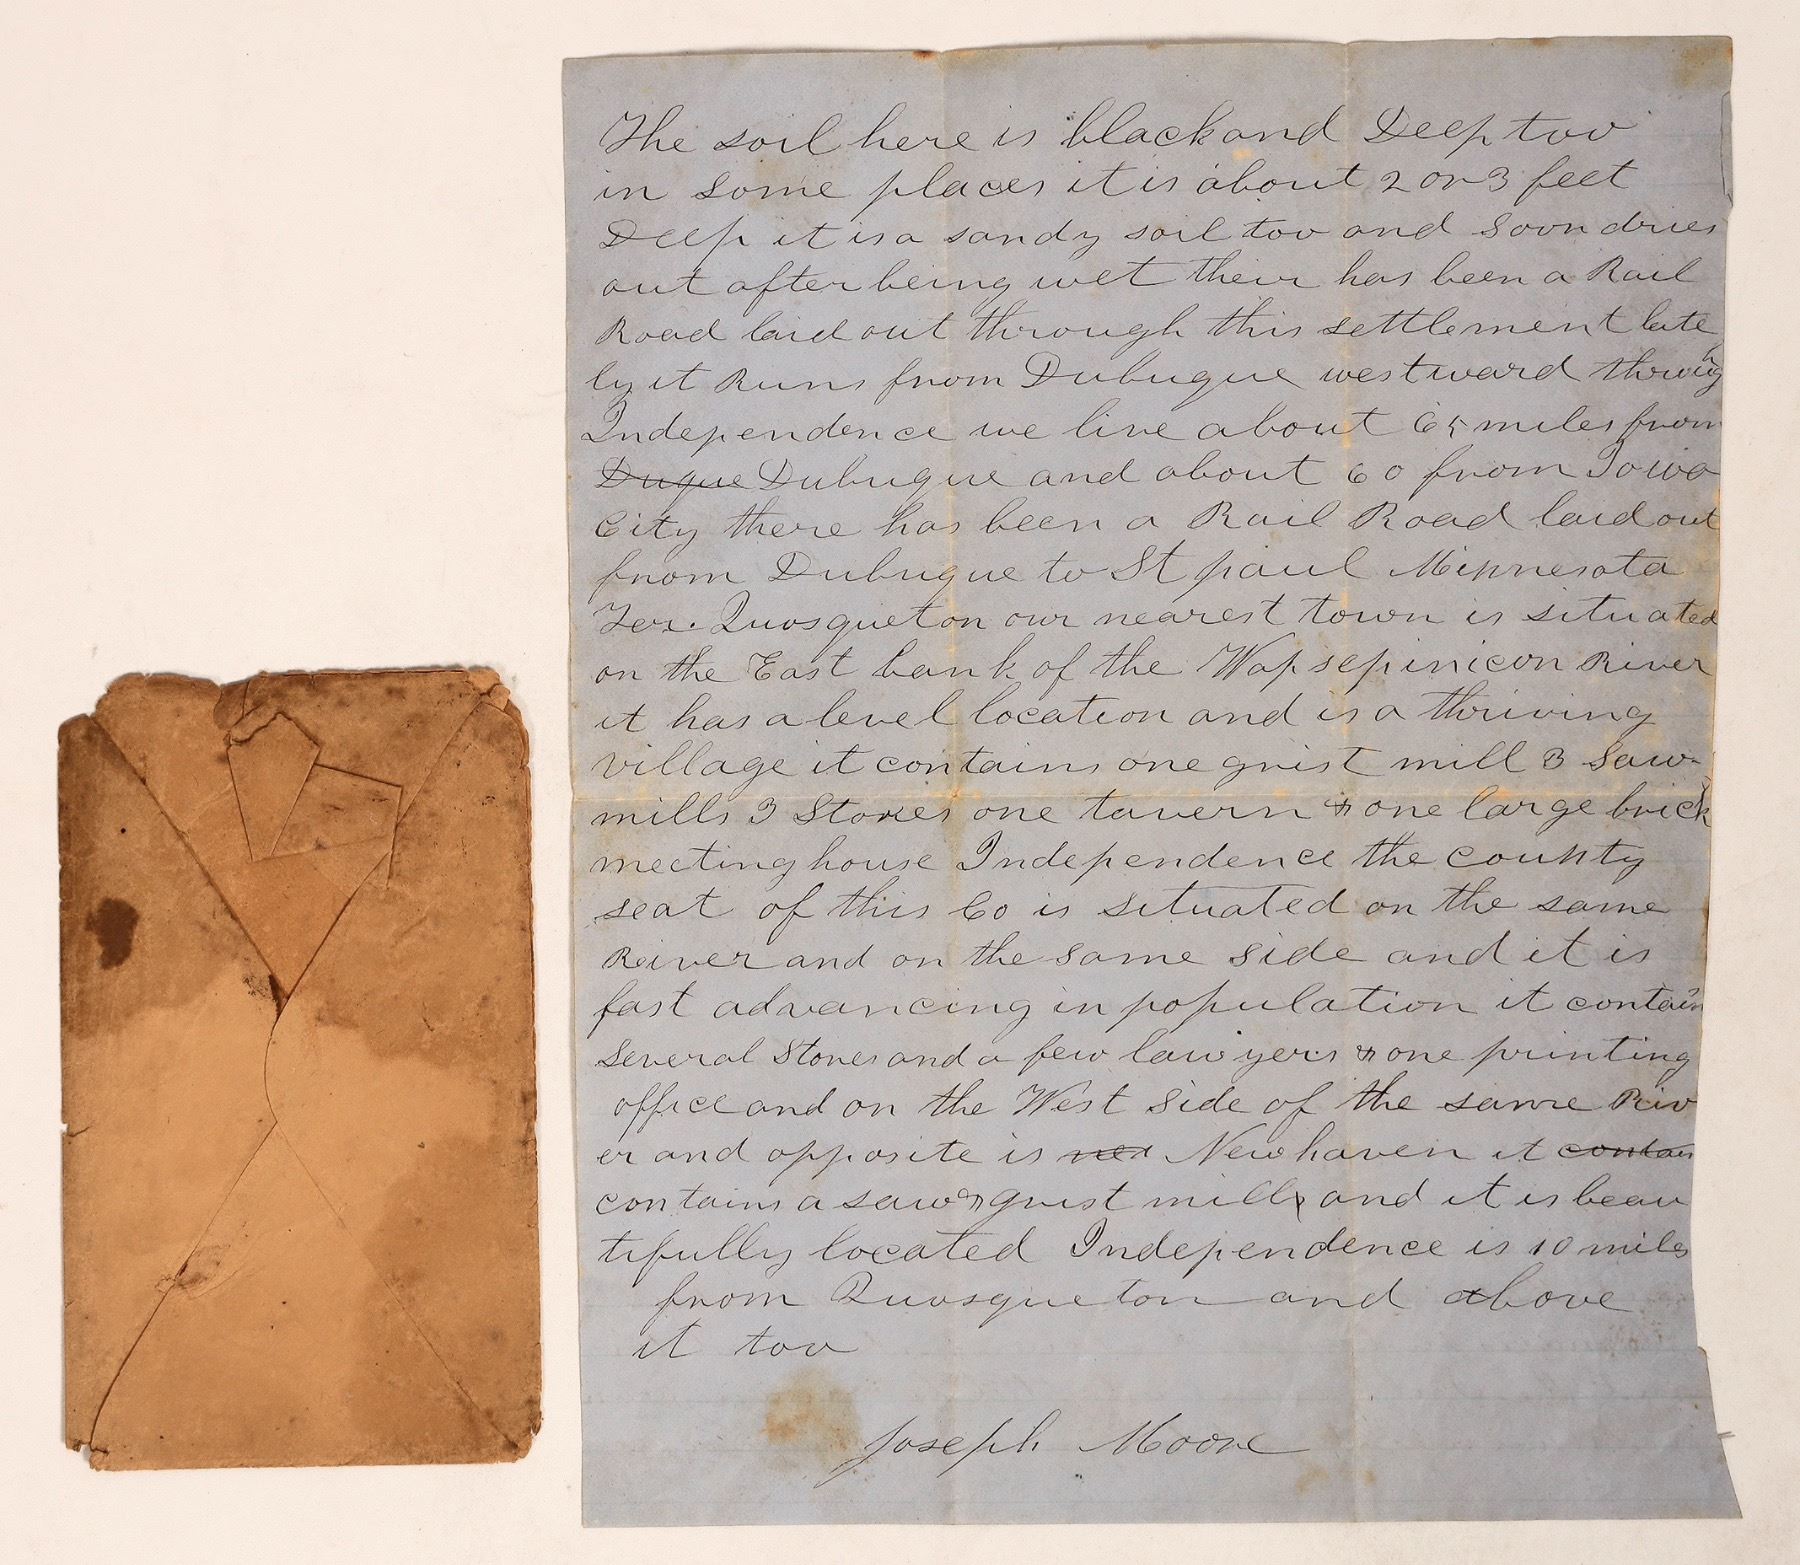 The soil here is black and Deep too
in some places it is about 2 or 3 feet
Deep it is a sandy soil too and soon dries
out after being wet their has been a Rail
Road laid out through this settlement late
ly it Runs from Dubuque westward through
Independence we live about 65 miles from
Duque Dubuque and about 60 from Iowa
City there has been a Rail Road laid out
from Dubuque to St paul Minnesota
Ter. Quosqueton our nearest town is situated
on the East bank of the Wapsepinicon River
it has a level location and is a thriving
village it contains one grist mill 3 Saw-
mills 3 Stores one tavern & one large brick
meeting house Independence the county
seat of this Co is situated on the same
River and on the same side and it is
fast advancing in population it contain
Several Stores and a few lawyers & one printing
office and on the West Side of the same Riv
er and opposite is New haven it contain
contains a saw & grist mill and it is beau
tifully located Independence is 10 miles
from Quosqueton and above
it too
Joseph Moore